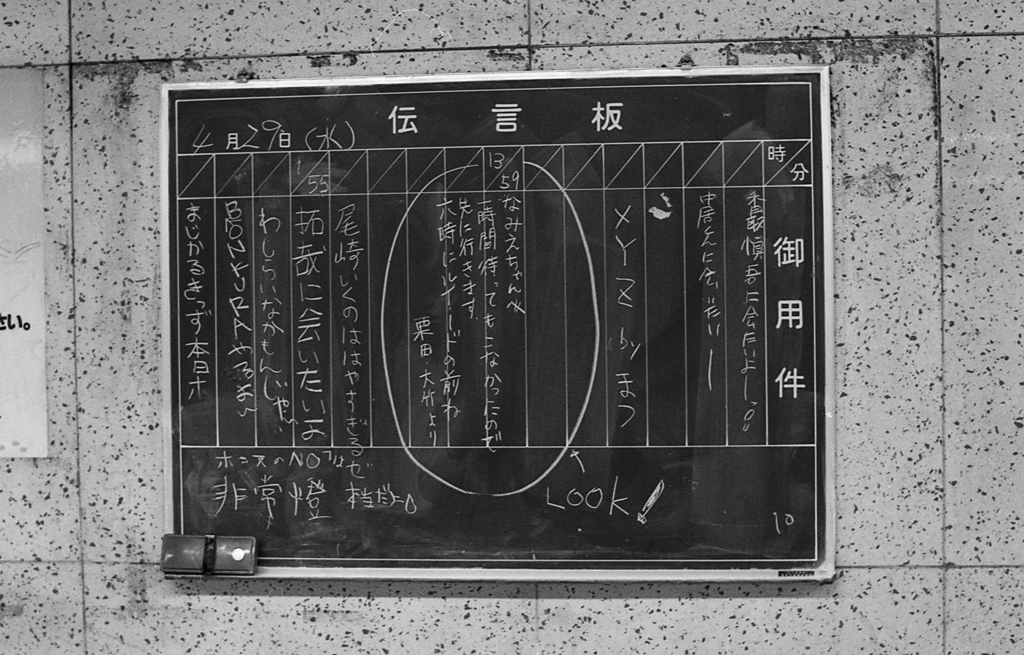 伝言板
4月29日(水)
時分
御用件
香取慎吾に会たいよー
中居くんに会いたいー
XYZ by まつ
13 59
なみえちゃんへ
一時間待ってもこなかったので
先に行きます。
六時にルノードの前ね
栗田 大竹より
尾崎いくのははやすぎるぜ
本当だよー
1 55
拓哉に会いたいよ
わしらいなかもんじゃい
BONKURAやるまい
まじかるきっず本日ホ
ホンスのNO1は
非常燈
LOOK!
10
さい。